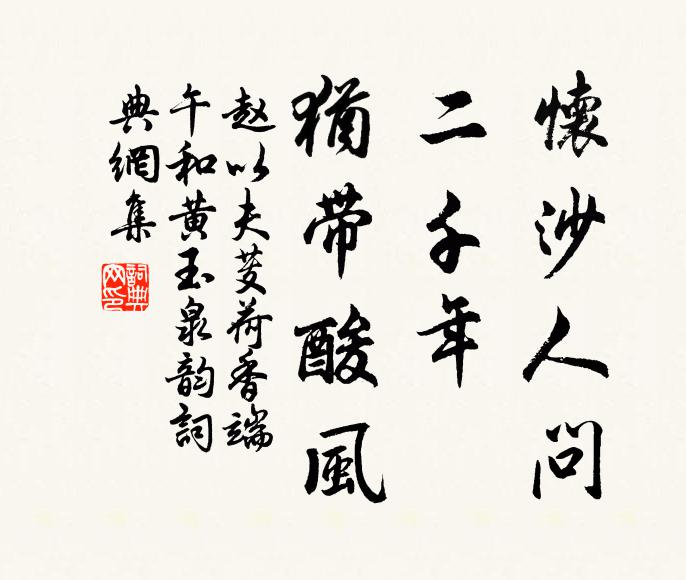 懷沙人問
二千年
猶帶酸風
赵以夫芰荷香端
午和黄玉泉韵詞
典網集
詞典网印